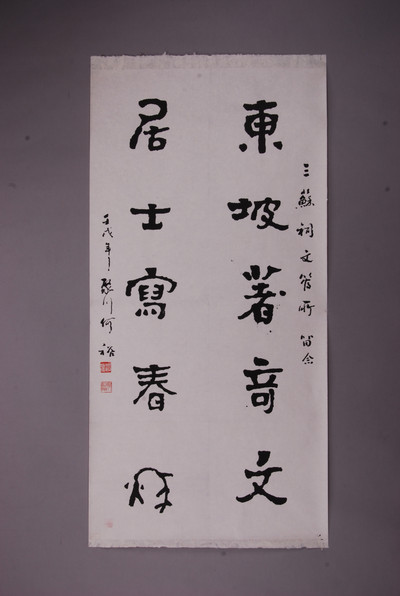 三蘇祠文管所留念
東坡著竒文
居士寫春秋
壬戌年 川何裕